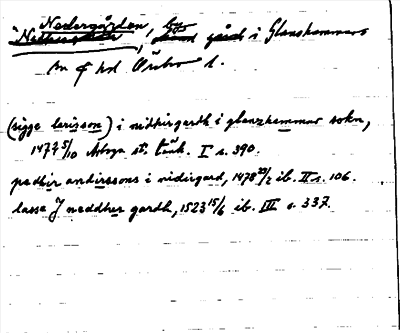 Nedergården,
i Glanshammars
sn o hd Örebro l.
(sigge larisson) i nidhirgardh i glanzhammar sokn,
1477 5/10 Arboga st. tänk. I s. 390.
pedhir andirssons i nidirgard, 1478 23/2 ib. II s. 106.
lasse J neddher gardh, 1523 15/6 ib. III s. 337.